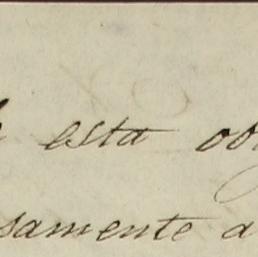 esta
samente a